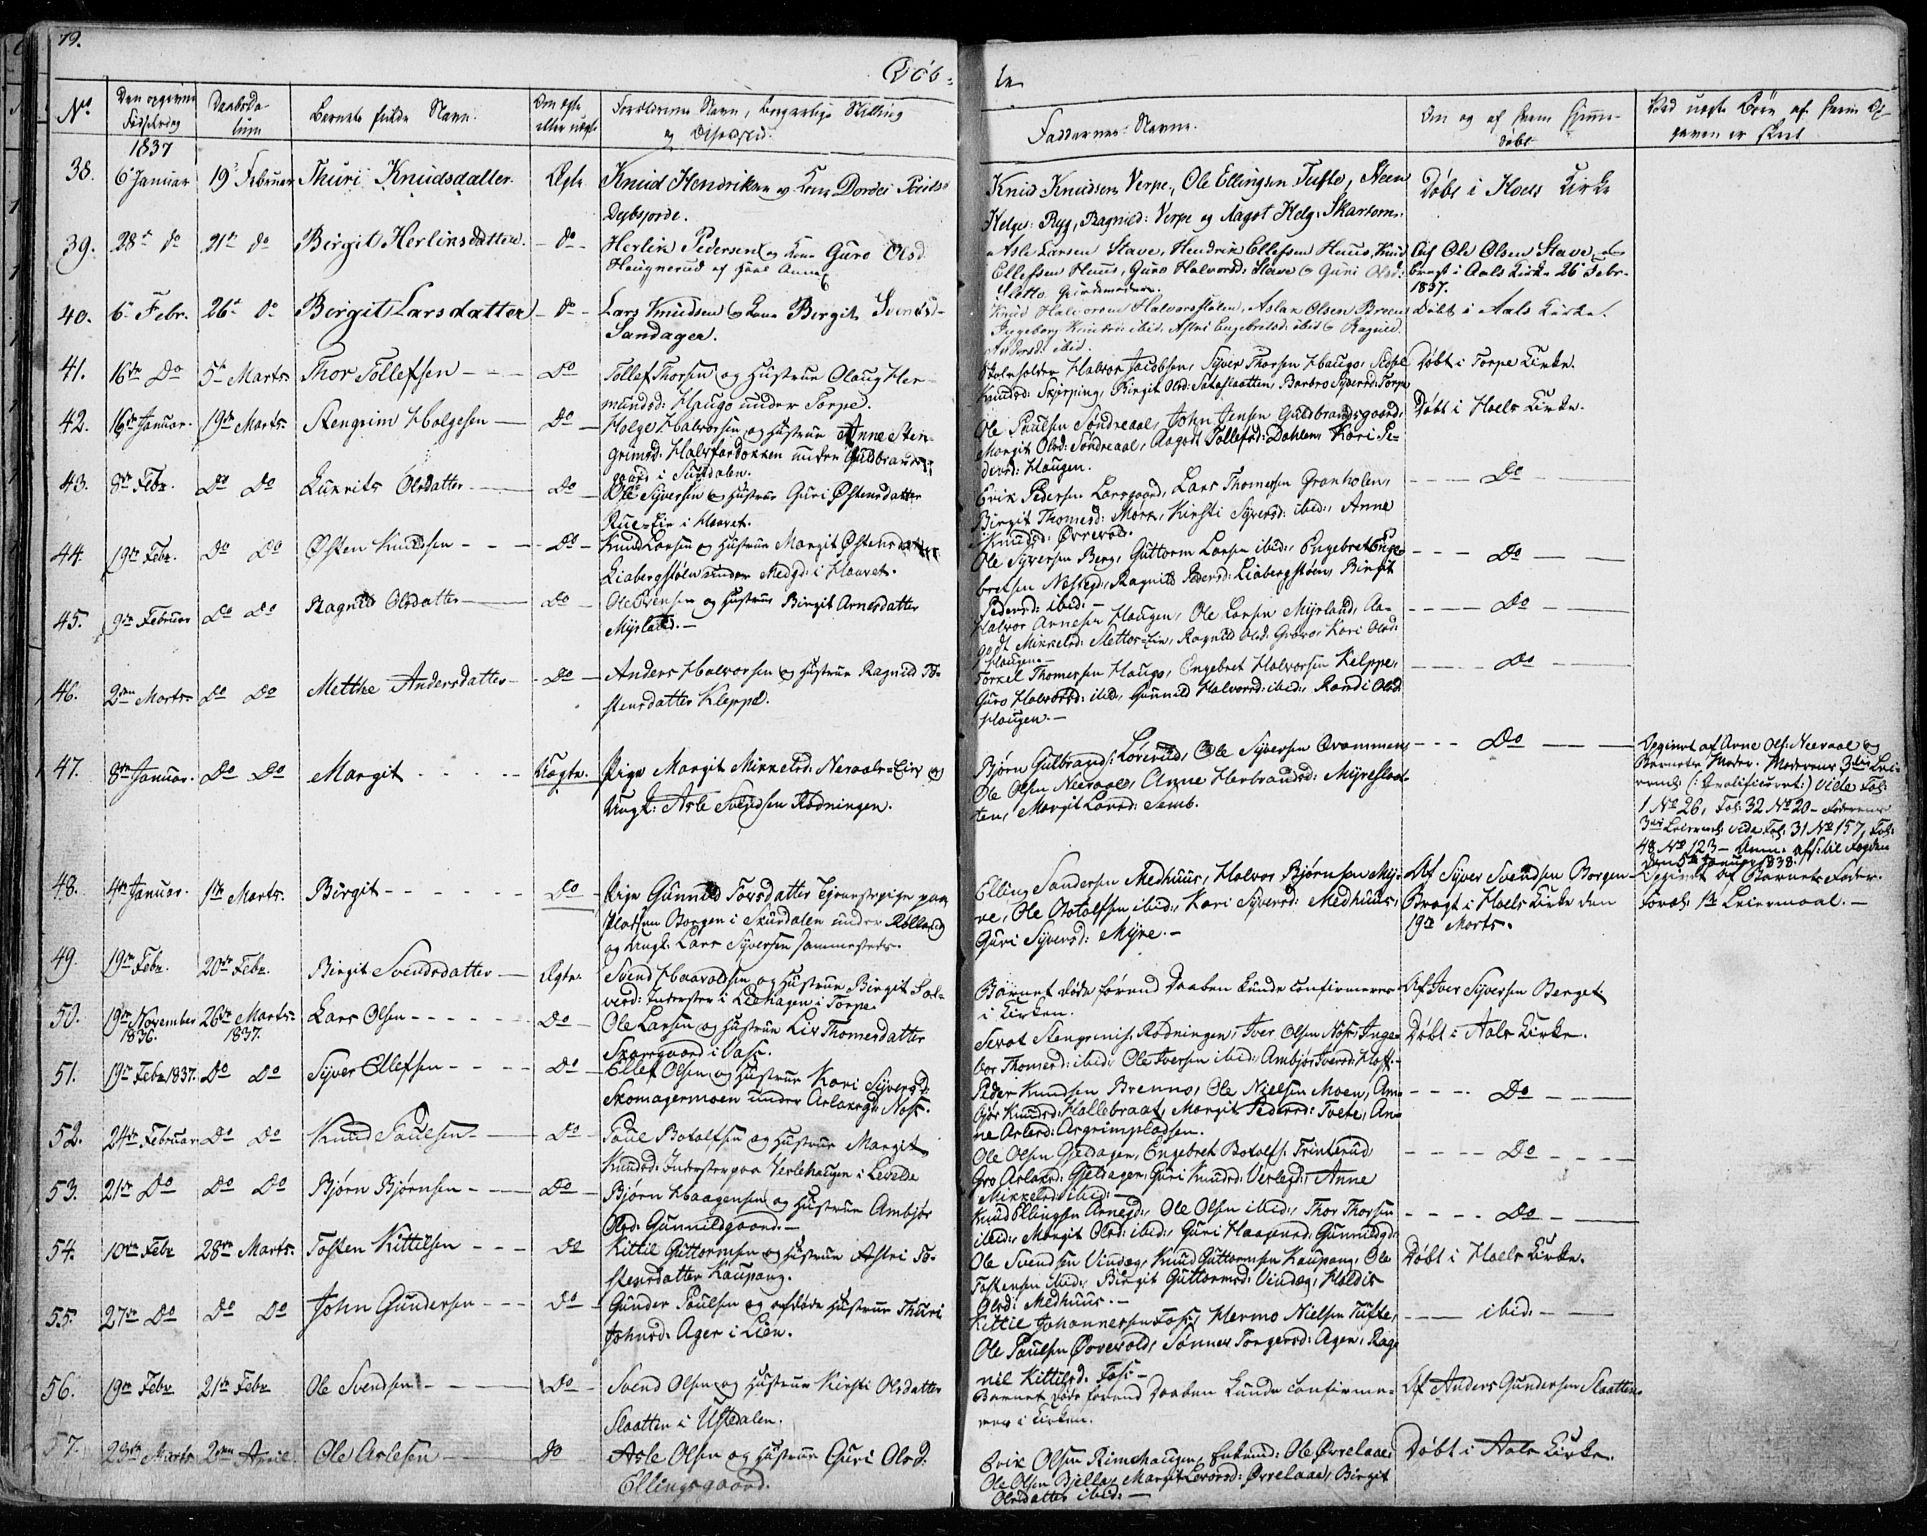 79.
Døb-
te
No
Den opgivne
Fødselsdag
Daabsda-
tum
Barnets fulde Navn.
Om ægte
eller uægte
Forældrenes Navn, borgerlige Stilling
og Opholdssted.
Faddernes Navne.
Om og af hvem hjemme-
døbt
Ved uægte Børn af hvem Op-
gaven er skeet
1837
38. 6te Januar 19de Februar Thuri Knudsdatter. Ægte. Knud Hendriksen og Kone Dordei
Knud Knudsen Verpe, Ole Ellingsen Tufte, Steen
Helges: Ryg, Ragnild: Verpe og Aagot Helg:
Døbt i Hoels Kirke
39. 28de do 21de do Birgit Herlinsdatter. - do - Herlin Pedersen og Kone Guro Olsd
Haugnerud af Hoels Annex
Asle Larsen Stave, Hendrik Ellefsen Huus, Knud
Ellefsen Huus, Guro Halvorsd: Stave og Guri Olsd:
Slotto
Af Ole Olsen Stave,
bragt i Aals Kirke 26de Febr.
1837.
40. 6te Febr. 26de do Birgit Larsdatter - do - Lars Knudsen og Kone Birgit Svendsd-
Sandager.
Knud Halvorsen Halvorsstølen, Aslak Olsen
Ingeborg Knudsd: ibid. Astri Engebretsd: ibid og Ragnild
Andersd: ibid.
Døbt i Aals Kirke.
41. 16de Do 5te Marts Thor Tollefsen - - - Do Tollef Thorsen og Hustrue Olaug Her-
mundsd: Haugo under Torpe.
Skoleholder Halvor Jacobsen, Syver Thorsen Haugo, Sidsel
Knudsd: Skjerping, Birgit Olsd: Sataslaatten, Barbro Syversd: Torpe
Døbt i Torpe Kirke.
42. 16de Januar. 19de Marts. Stengrim Helgesen - Do - Helge Halvorsen og Hustrue Anne Sten-
grimsd: under Guldbrands-
gaard i Sundalen.
Ole Paulsen Søndreaal, John Jensen Guldbrandsgaard,
Margit Olsd: Søndreaal, Aagodt Tollefsd: Dahlen, Kari Pe-
dersd: Haugen.
Døbt i Hoels Kirke.
43. 8de Febr. Do Do Olsdatter - Do - Ole Syversen og Hustrue Guri Østensdatter
Rue-Eie i Haavet.
Erik Pedersen Larsgaard, Lars Thomesen Granholen,
Birgit Thomesd: Mørk, Kirsti Syversd: ibid:, Anne
Knudsd: Øvrevold.
- - - Do
44. 19de Febr. Do Do Østen Knudsen - - - Do - Knud Larsen og Hustrue Margit Østensdatter
Liabergstøen under Medgd: i Haavet.
Ole Syversen Berg, Guttorm Larsen ibid:, Engebret Enge-
bretsen Nestegd:, Ragnild Pedersd: Liabergstøen, Birgit
Pedersd: ibid: -
- - - Do - -
45. 9de Februar Do Do Ragnild Olsdatter - Do - Ole Svensen og Hustrue Birgit Arnesdatter
Myrland. -
Halvor Arnesen Haugen, Ole Larsen Myrland, Aa-
godt Mikkelsd: Slettos-Eie, Ragnild Olsd: Grøvo, Kari Olsd:
Haugen -
- - - Do - -
46. 2den Marts. Do Do Metthe Andersdatter - Do - Anders Halvorsen og Hustrue Ragnild To-
stensdatter Kleppe.
Torkel Thomesen Haugo, Engebret Halvorsen Kleppe,
Guro Halvorsd: ibid:, Gunnild Halvorsd: ibid:, Randi Olsd:
Haugen. -
- - - Do - -
47. 8de Januar. Do Do Margit - - - - Uægte. Pige Margit Mikkelsd: Neraals-Eie og
Ungk: Asle Svendsen Rødningen.
Bjørn Gulbrands: Løverud, Ole Syversen Qvammen,
Ole Olsen Neeraal, Anne Herbrandsd: Myreslaat-
ten, Margit Larsd: Semb.
- - - Do - -
Opgivet af Arne Ols: Neeraal og
Barnets Moder. Moderens 3die Lei-
ermaal vide Fol:
1 No 26, Fol: 32 No 20 - Faderens
3die Leierm: vide Fol: 31 No 157, Fol:
48 No 123 - Anm. afs: til Fogden
den 5te Januar 1838.
48. 4de Januar. 1ste Marts. Birgit - - - - - - Do - Pige Gunnild Torsdatter Tjenestepige paa
Pladsen Borgen i Skurdalen under Rølland
og Ungk: Lars Syversen sammesteds.
Elling Sandersen Medhuus, Halvor Bjørnsen My-
re, Ole Botolfsen ibid:, Kari Syversd: Medhuus,
Guri Syversd: Myre. -
Af Syver Svendsen Borgen
Bragt i Hoels Kirke den
19de Marts.
Opgivet af Barnets Fader.
Foræld: 1ste Leiermaal. -
49. 19de Febr. 20de Febr. Birgit Svendsdatter - Ægte. Svend Haavoldsen og Hustrue Birgit Sol-
versd: Inderster i Liehagen i Torpe.
Barnet døde førend Daaben kunde confirmeres
i Kirken.
Af Iver Syversen Berget
50. 19de November
1836. 26de Marts.
1837. Lars Olsen - - - - - - Do - Ole Larsen og Hustrue Liv Thomesdatter
Skovgaard i Vats.
Sevat Stengrims: Rødningen, Iver Olsen Nos:, Inge-
bor Thomesd: ibid: Ole Iversen ibid:, Ambjør Iversd: Hoff. -
Døbt i Aals Kirke.
51. 19de Febr 1837. Do Do Syver Ellefsen - - - - Do - Ellef Olsen og Hustrue Kari Syversd:
Skomagermoen under Aslaksgd: Nos:.
Peder Knudsen Brenno, Ole Nielsen Moen, Am-
bjør Knudsd: Hallebraat, Margit Pedersd: Tveto, An-
ne Aslesd: Asgrimpladsen.
- - - - Do -
52. 24de Februar Do Do Knud Paulsen - - Do - Paul Botolfsen og Hustrue Margit
Knudsd: Inderster paa Veslehaugen i Leveld
Ole Olsen Gjeldager, Engebret Botolfs: Trinterud,
Gro Aslaksd: Gjeldager, Guri Knudsd: Veslegd:, Anne
Mikkelsd: ibid: -
- - - - Do - - -
53. 21de Do Do Do Bjørn Bjørnsen - - - Do - Bjørn Haagensen og Hustrue Ambjør
Olsd: Gunnildgaard. -
Knud Ellingsen Arnegd:, Ole Olsen ibid:, Thor Thorsen
ibid:, Margit Olsd: ibid:, Guri Haagensd: Gunnildgd:
- - - - Do - - -
54. 10de Febr 28de Marts. Tosten Kittilsen - - - Do Kittil Guttormsen og Hustrue Astri To-
stensdatter Kaupang.
Ole Svendsen Vindeg, Knud Guttormsen Kaupang, Ole
Tostensen ibid:, Birgit Guttormsd: Vindeg, Haldis
Olsd: Medhuus. -
Døbt i Hoels Kirke.
55. 27de Do Do Do John Gundersen - - - Do - Gunder Paulsen og afdøde Hustrue Thuri
Johnsd: Ager i Lien.
Kittil Johannesen Fos:, Hermo Nielsen Tufte,
Ole Paulsen Øvrevold, Sønnev Torgersd: Ager, Rag-
nil Kittilsd: Fos: -
- - - ibid: - - -
56. 19de Febr 21de Febr Ole Svendsen - - - - Do - Svend Olsen og Hustrue Kirsti Olsdatter
Slaatten i Ustedalen.
Barnet døde førend Daaben kunde confirme-
res i Kirken.
Af Anders Gundersen Slaatten
57. 23de Marts 2den April. Ole Aslesen - - - Do - Asle Olsen og Hustrue Guri Olsd.
Ellingsgaard.
Erik Olsen Rimehaugen, Enkemd: Ole Øvrelaae,
Ole Olsen Bjella, Margit Levorsd: Øvrelaae, Birgit
Olsdatter ibid: -
Døbt i Aals Kirke.